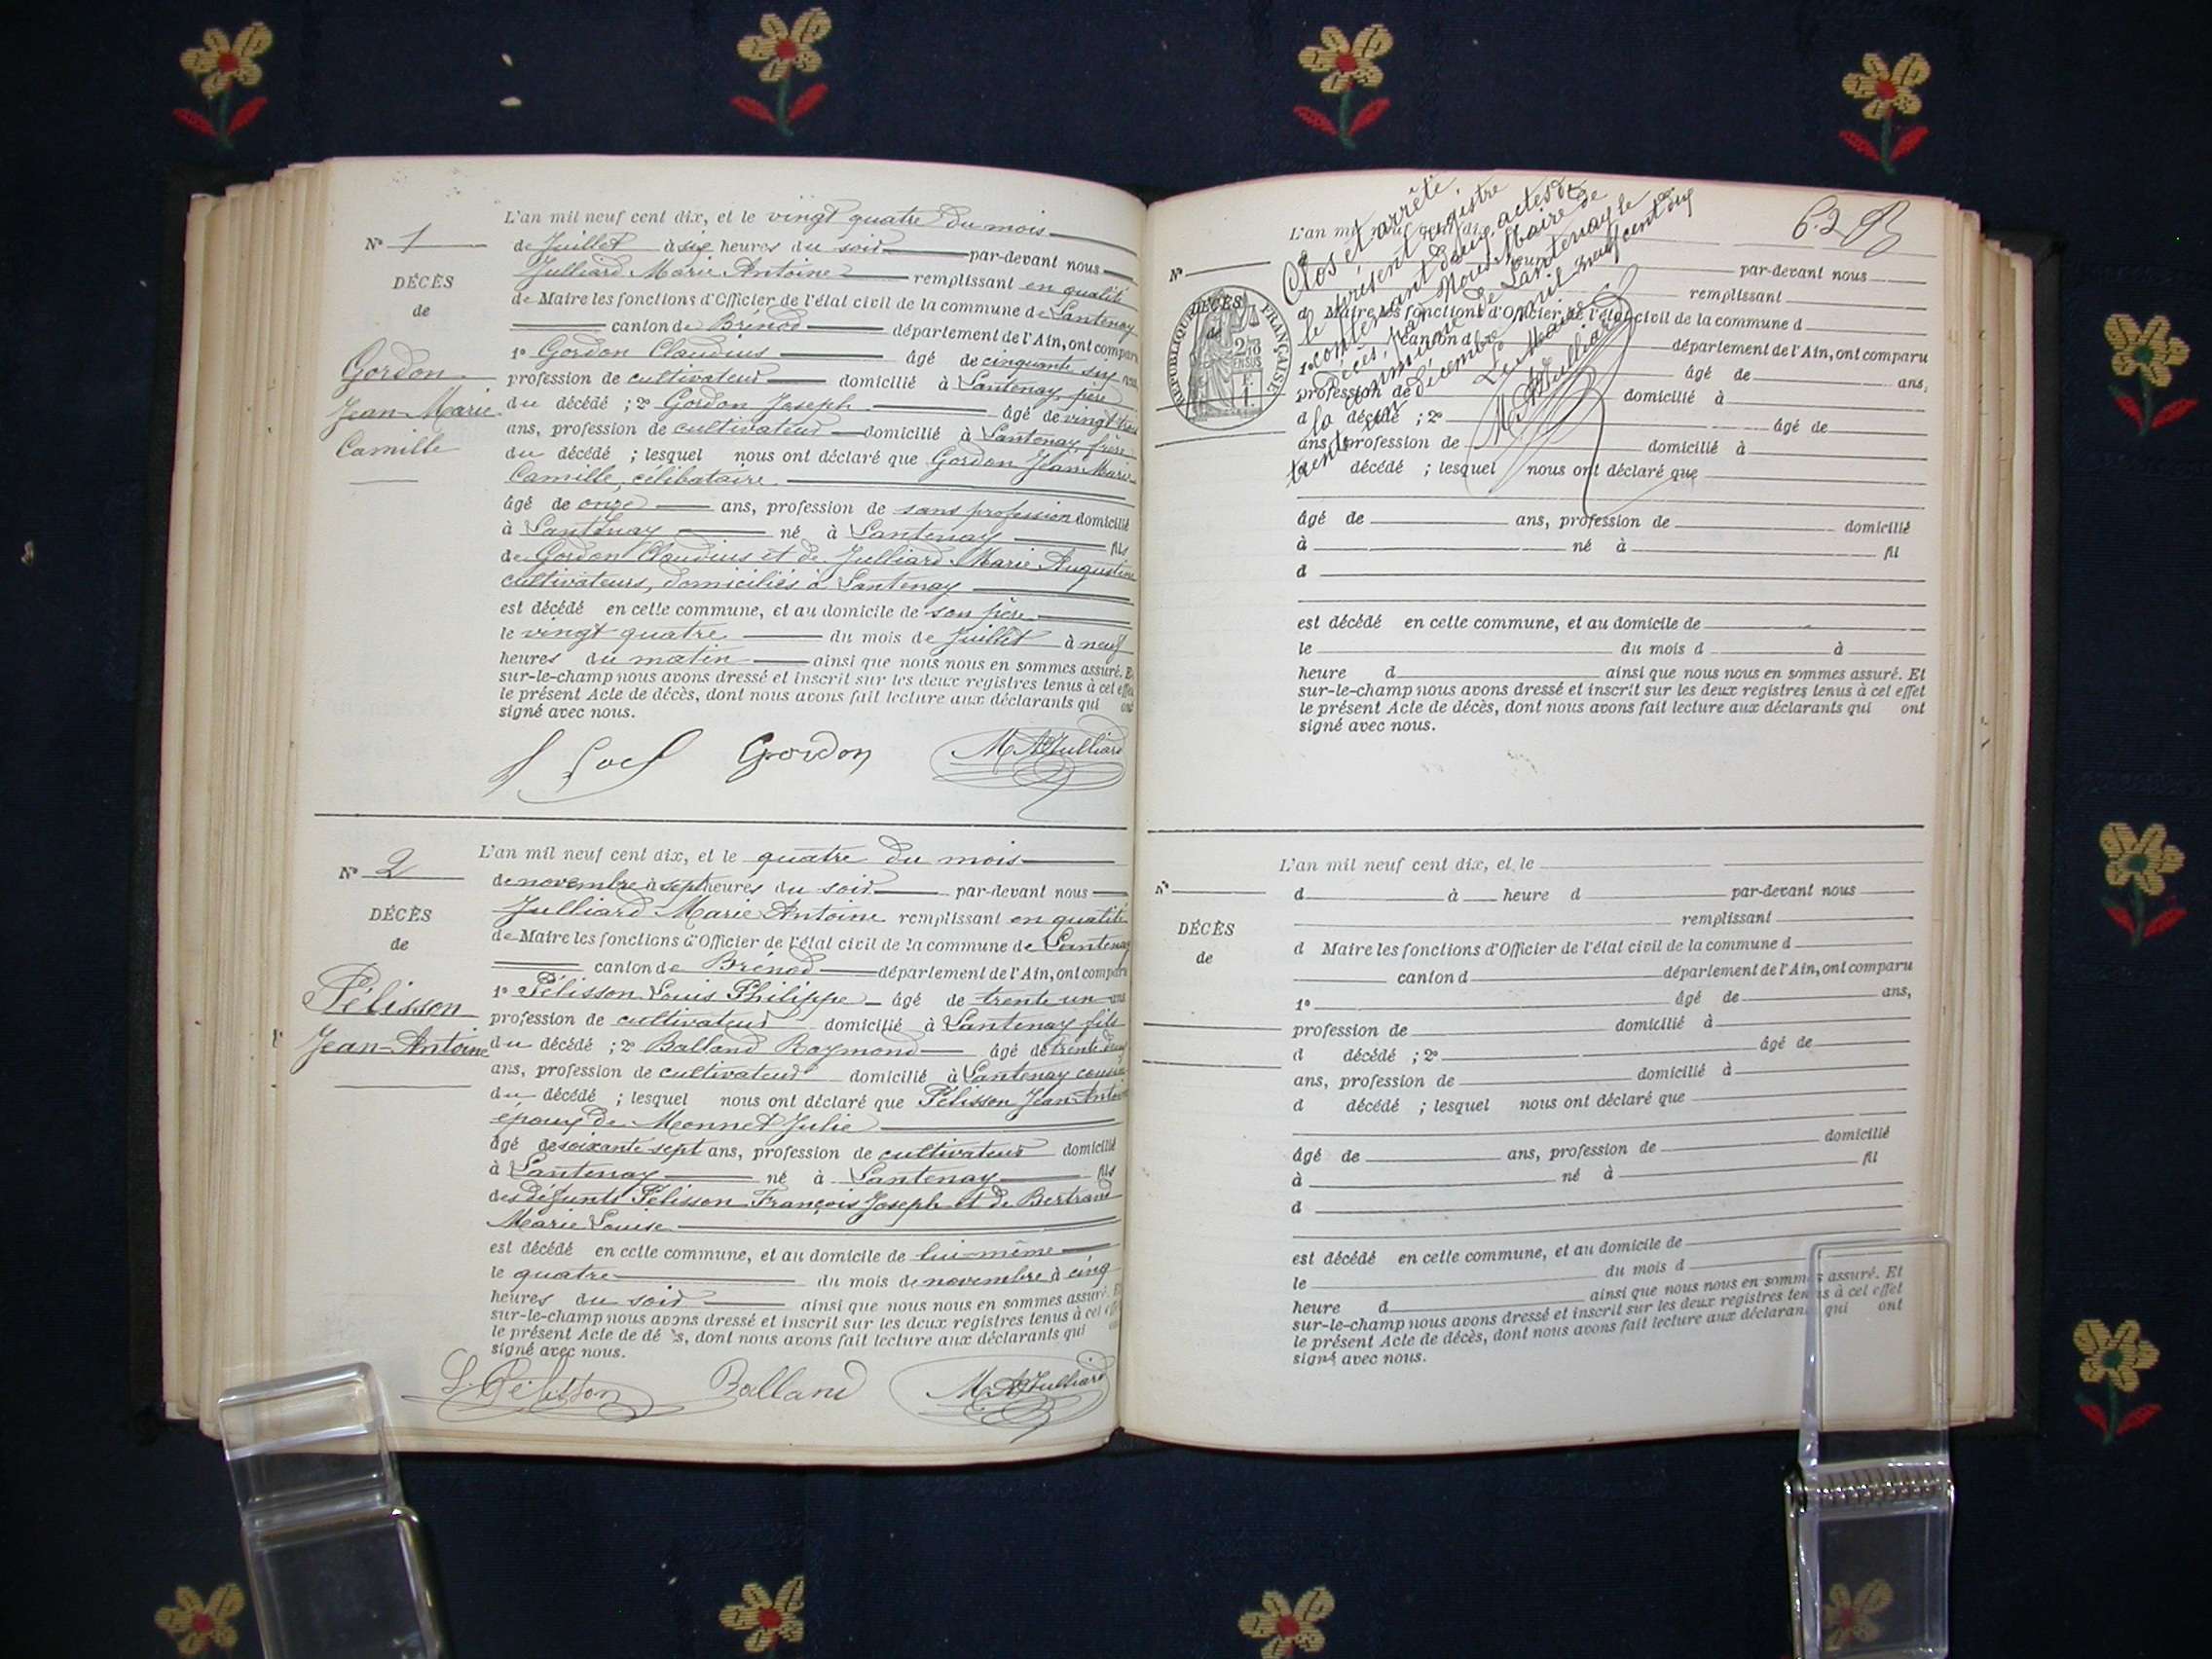 L'an mil neuf cent dix, et le vingt quatre du mois
N° 1
de Juillet à six heures du soir par-devant nous
Julliard Marie Antoine remplissant en qualité
DÉCÈS
de Maire les fonctions d'Officier de l'état civil de la commune de Lantenay
de
canton de Brénod département de l'Ain, ont comparu
1° Gordon Claudius âgé de cinquante six ans
Gordon
profession de cultivateur domicilié à Lantenay, père
Jean-Marie
du décédé ; 2° Gordon Joseph âgé de vingt
Camille
ans, profession de cultivateur domicilié à Lantenay, frère
du décédé ; lesquel nous ont déclaré que Gordon Jean Marie
Camille, célibataire
âgé de onze ans, profession de sans profession domicilié
à Lantenay né à Lantenay fils
de Gordon Claudius et de Julliard Marie Augustine
cultivateurs, domiciliés à Lantenay
est décédé en cette commune, et au domicile de son père
le vingt quatre du mois de Juillet à neuf
heures du matin ainsi que nous nous en sommes assuré. Et
sur-le-champ nous avons dressé et inscrit sur les deux registres tenus à cet effet
le présent Acte de décès, dont nous avons fait lecture aux déclarants qui ont
signé avec nous.
Gordon M A Julliard
L'an mil neuf cent dix, et le quatre du mois
N° 2
de novembre à sept heures du soir par-devant nous
Julliard Marie Antoine remplissant en qualité
DÉCÈS
de Maire les fonctions d'Officier de l'état civil de la commune de Lantenay
de
canton de Brénod département de l'Ain, ont comparu
1° Pélisson Louis Philippe âgé de trente un ans
Pélisson
profession de cultivateur domicilié à Lantenay fils
Jean-Antoine
du décédé ; 2° Balland Raymond âgé de trente deux
ans, profession de cultivateur domicilié à Lantenay cousin
du décédé ; lesquel nous ont déclaré que Pélisson Jean Antoine
époux de Monnet Julie
âgé de soixante sept ans, profession de cultivateur domicilié
à Lantenay né à Lantenay fils
des défunts Pélisson François Joseph et de Bertrand
Marie Louise
est décédé en cette commune, et au domicile de lui-même
le quatre du mois de novembre à cinq
heures du soir ainsi que nous nous en sommes assuré. Et
sur-le-champ nous avons dressé et inscrit sur les deux registres tenus à cet effet
le présent Acte de décès, dont nous avons fait lecture aux déclarants qui ont
signé avec nous.
L. Pélisson Balland M A Julliard
Clos et arrêté
le présent registre
contenant deux actes de
décès, par Nous Maire de
la commune de Lantenay le
trente un décembre mil neuf cent dix
Le Maire
M A Julliard
RÉPUBLIQUE FRANÇAISE
L'an mil neuf cent dix
N°
par-devant nous
remplissant
DÉCÈS
d Maire les fonctions d'Officier de l'état civil de la commune d
de
canton d département de l'Ain, ont comparu
1° âgé de ans,
profession de domicilié à
d décédé ; 2° âgé de
ans, profession de domicilié à
décédé ; lesquel nous ont déclaré que
âgé de ans, profession de domicilié
à né à fil
d
est décédé en cette commune, et au domicile de
le du mois d à
heure d ainsi que nous nous en sommes assuré. Et
sur-le-champ nous avons dressé et inscrit sur les deux registres tenus à cet effet
le présent Acte de décès, dont nous avons fait lecture aux déclarants qui ont
signé avec nous.
L'an mil neuf cent dix, et le
N°
d à heure d par-devant nous
remplissant
DÉCÈS
d Maire les fonctions d'Officier de l'état civil de la commune d
de
canton d département de l'Ain, ont comparu
1° âgé de ans,
profession de domicilié à
d décédé ; 2° âgé de
ans, profession de domicilié à
d décédé ; lesquel nous ont déclaré que
âgé de ans, profession de domicilié
à né à fil
d
est décédé en cette commune, et au domicile de
le du mois d
heure d ainsi que nous nous en sommes assuré. Et
sur-le-champ nous avons dressé et inscrit sur les deux registres tenus à cet effet
le présent Acte de décès, dont nous avons fait lecture aux déclarants qui ont
signé avec nous.